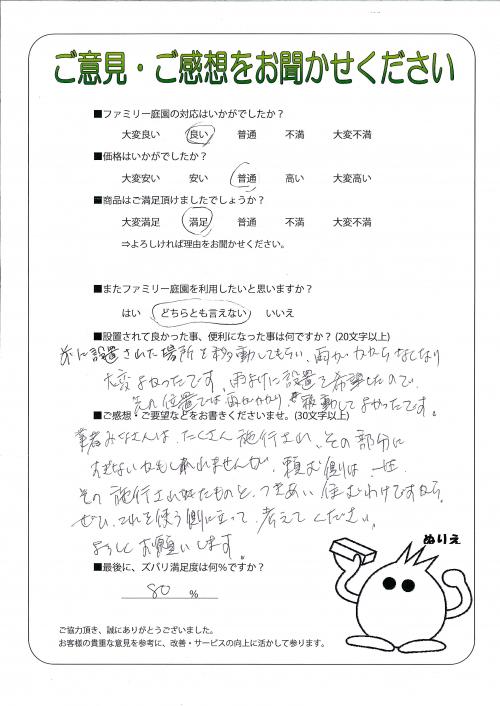 ご意見・ご感想をお聞かせください
■ファミリー庭園の対応はいかがでしたか？
大変良い 良い 普通 不満 大変不満
■価格はいかがでしたか？
大変安い 安い 普通 高い 大変高い
■商品はご満足頂けましたでしょうか？
大変満足 満足 普通 不満 大変不満
⇒よろしければ理由をお聞かせください。
■またファミリー庭園を利用したいと思いますか？
はい どちらとも言えない いいえ
■設置されて良かった事、便利になった事は何ですか？（20文字以上）
に設置された場所を移動してもらい、雨がかからなくなり
大変よかったです。雨よけに設置を希望したので、
元の位置では雨がかかり、移動してよかったです。
■ご感想・ご要望などをお書きくださいませ。（30文字以上）
業者みなさんは、たくさん施行され、その部分に
すぎないかもしれませんが、頼む側は、一生
その施行されたものと、つきあい住むわけですから、
ぜひ、これを使う側に立って、考えてください。
よろしくお願いします。
■最後に、ズバリ満足度は何％ですか？
80 ％
ぬりえ
ご協力頂き、誠にありがとうございました。
お客様の貴重な意見を参考に、改善・サービスの向上に活かして参ります。